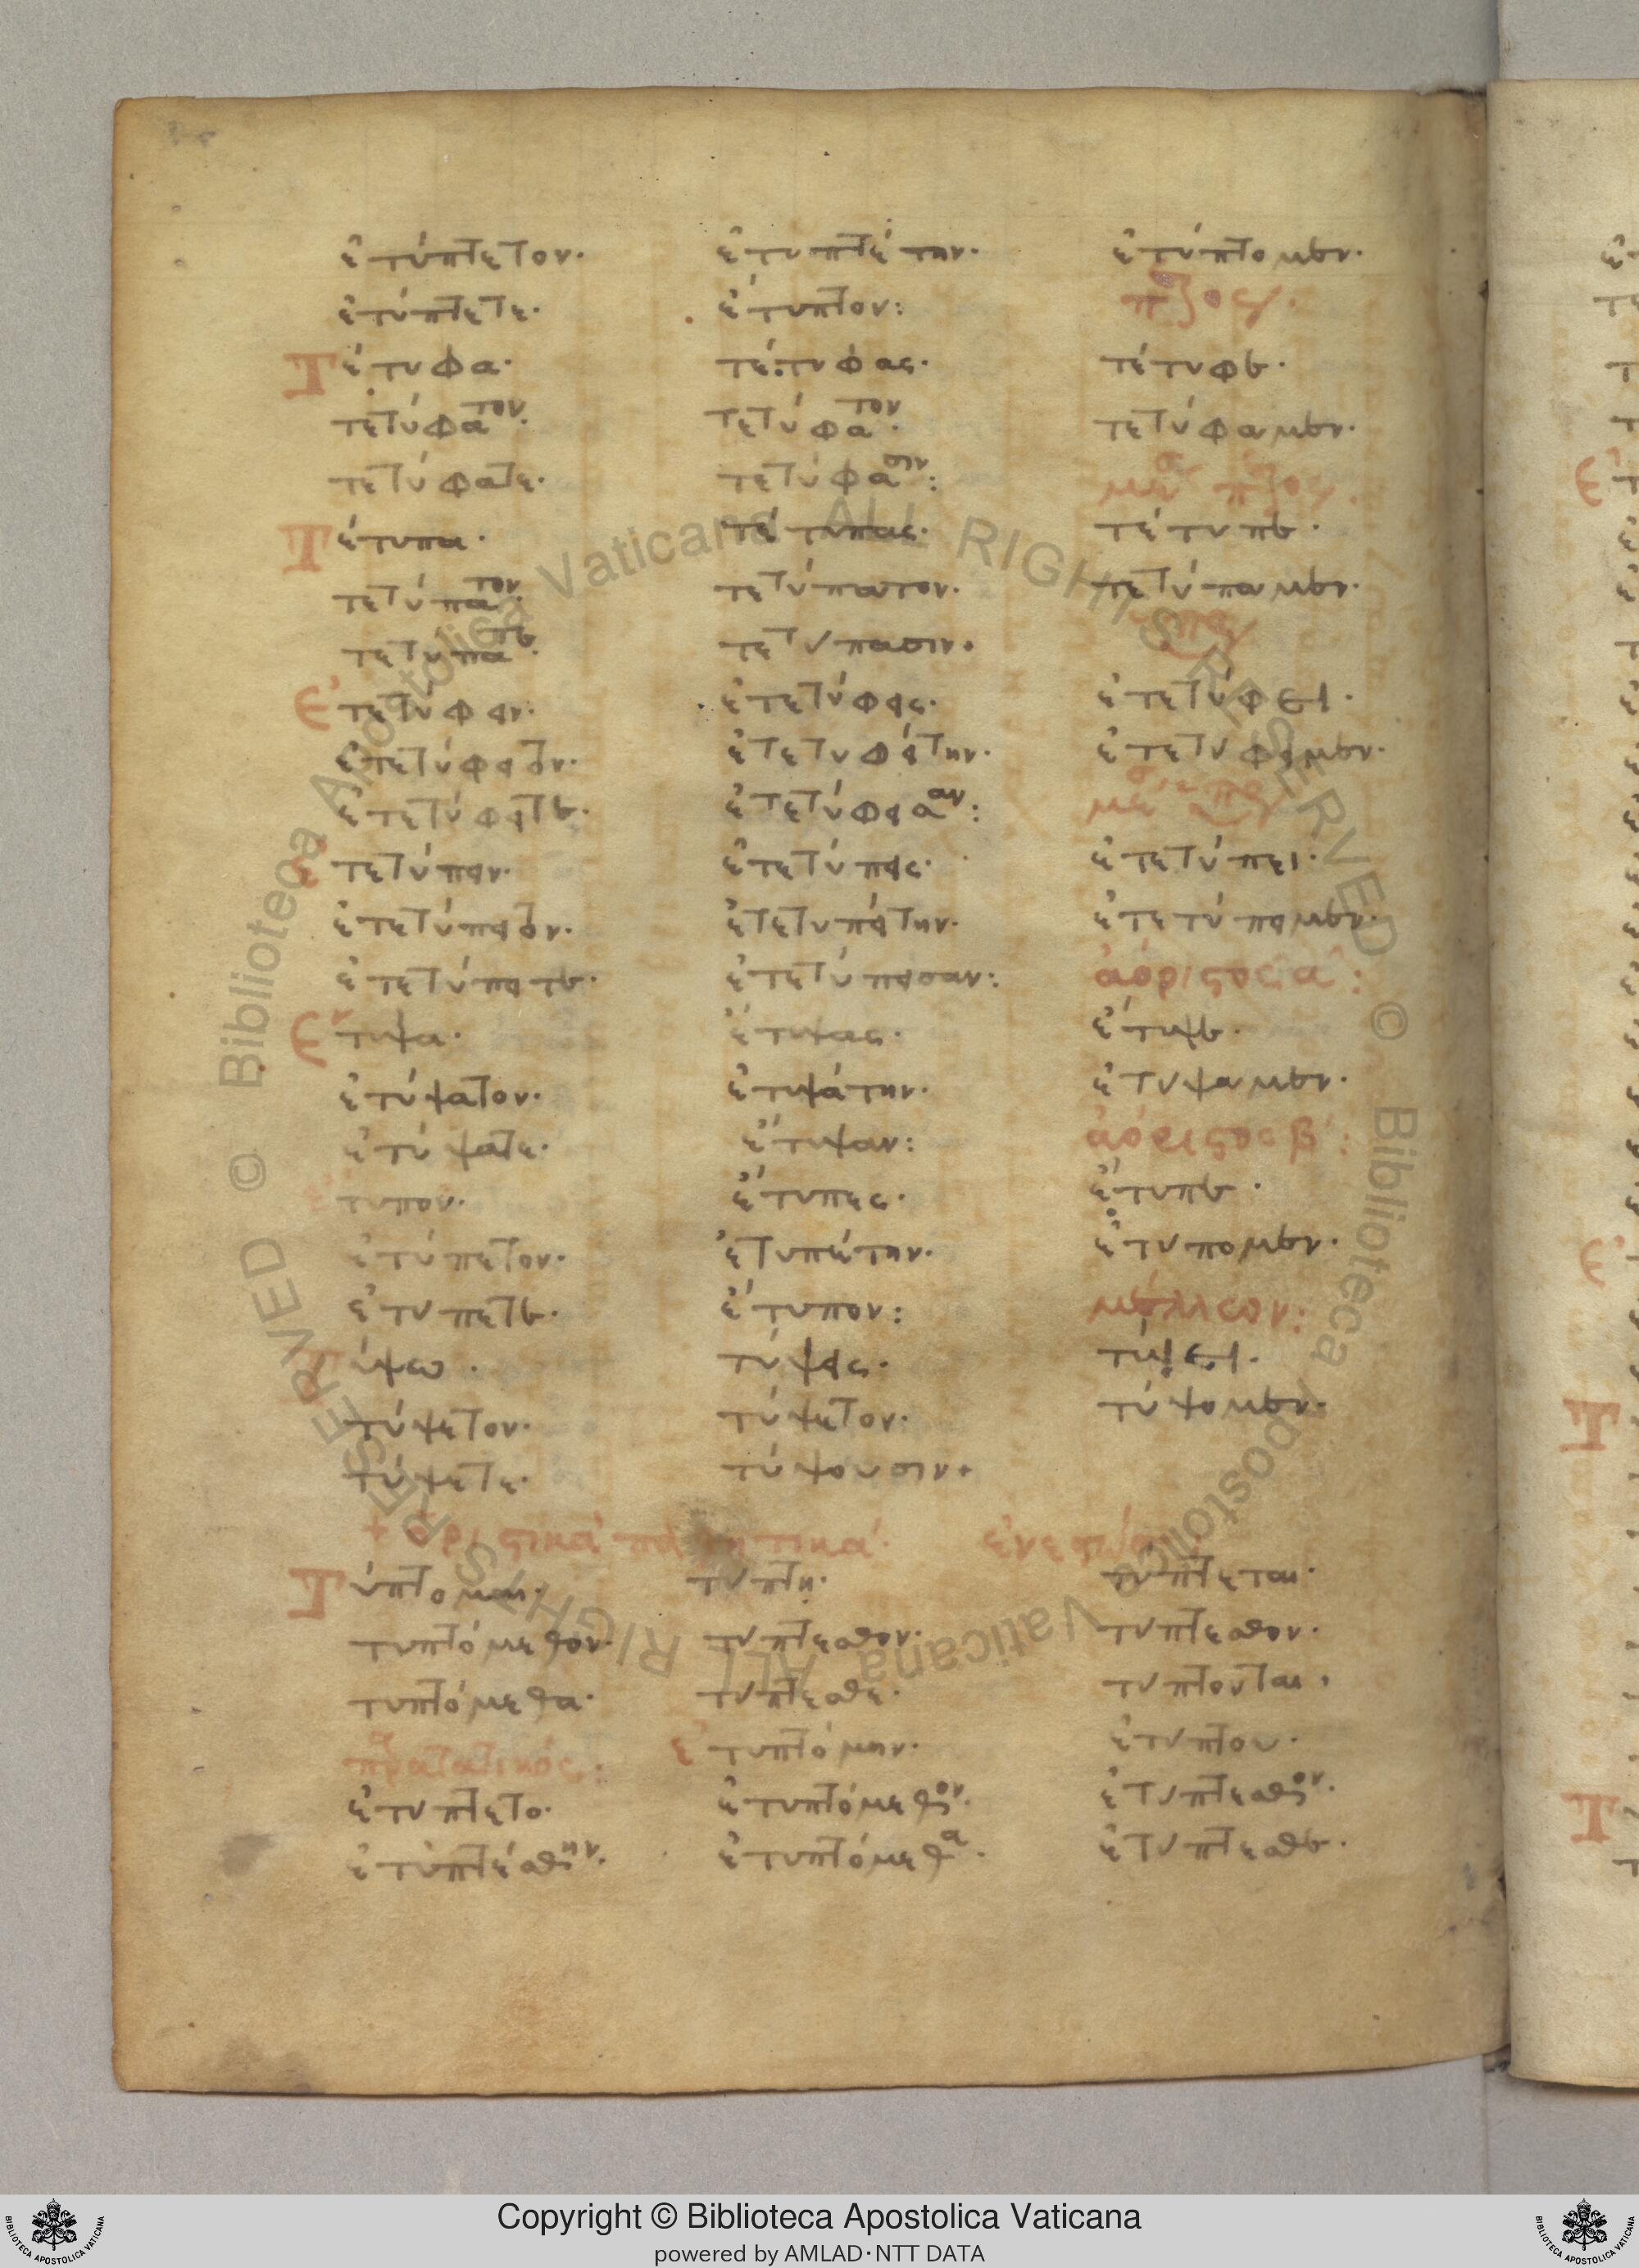 ἐτύπτετον· ἐτυπτέτην· ἐτύπτομεν·
ἐτύπτετε· ἔτυπτον:
Τέτυφα· τέτυφας· τέτυφε·
τετύφατον· τετύφατον· τετύφαμεν·
τετύφατε· τετύφασιν:
Τέτυπα· τέτυπας· τέτυπε·
τετύπατον· τετύπατον· τετύπαμεν·
τετύπατε· τετύπασιν·
Ἐτετύφειν· ἐτετύφεις· ἐτετύφει·
ἐτετύφειτον· ἐτετυφείτην· ἐτετύφειμεν·
ἐτετύφειτε·
Ἐτετύπειν· ἐτετύπεις· ἐτετύπει·
ἐτετύπειτον· ἐτετυπείτην· ἐτετύπειμεν·
ἐτετύπειτε· ἐτετύπεισαν: ἀόριστος α:
Ἔτυψα· ἔτυψας· ἔτυψε·
ἐτύψατον· ἐτυψάτην· ἐτύψαμεν·
ἐτύψατε· ἔτυψαν: ἀόριστος β:
ἔτυπον· ἔτυπες· ἔτυπε·
ἐτύπετον· ἐτυπέτην· ἐτύπομεν·
ἐτύπετε· ἔτυπον: μέλλων:
Τύψω· τύψεις· τύψει·
τύψετον· τύψετον· τύψομεν·
τύψετε· τύψουσιν·
+ ὁριστικὰ παθητικά·
Τύπτομαι· τύπτῃ· τύπτεται·
τυπτόμεθον· τύπτεσθον· τύπτεσθον·
τυπτόμεθα· τύπτεσθε· τύπτονται·
παρατατικός: ἐτυπτόμην· ἐτύπτου·
ἐτύπτετο· ἐτυπτόμεθον· ἐτύπτεσθον·
ἐτυπτέσθην· ἐτυπτόμεθα· ἐτύπτεσθε·
Copyright © Biblioteca Apostolica Vaticana
powered by AMLAD·NTT DATA
© Biblioteca Apostolica Vaticana ALL RIGHTS RESERVED © Biblioteca Apostolica Vaticana ALL RIGHTS RESERVED
BIBLIOTECA APOSTOLICA VATICANA
BIBLIOTECA APOSTOLICA VATICANA